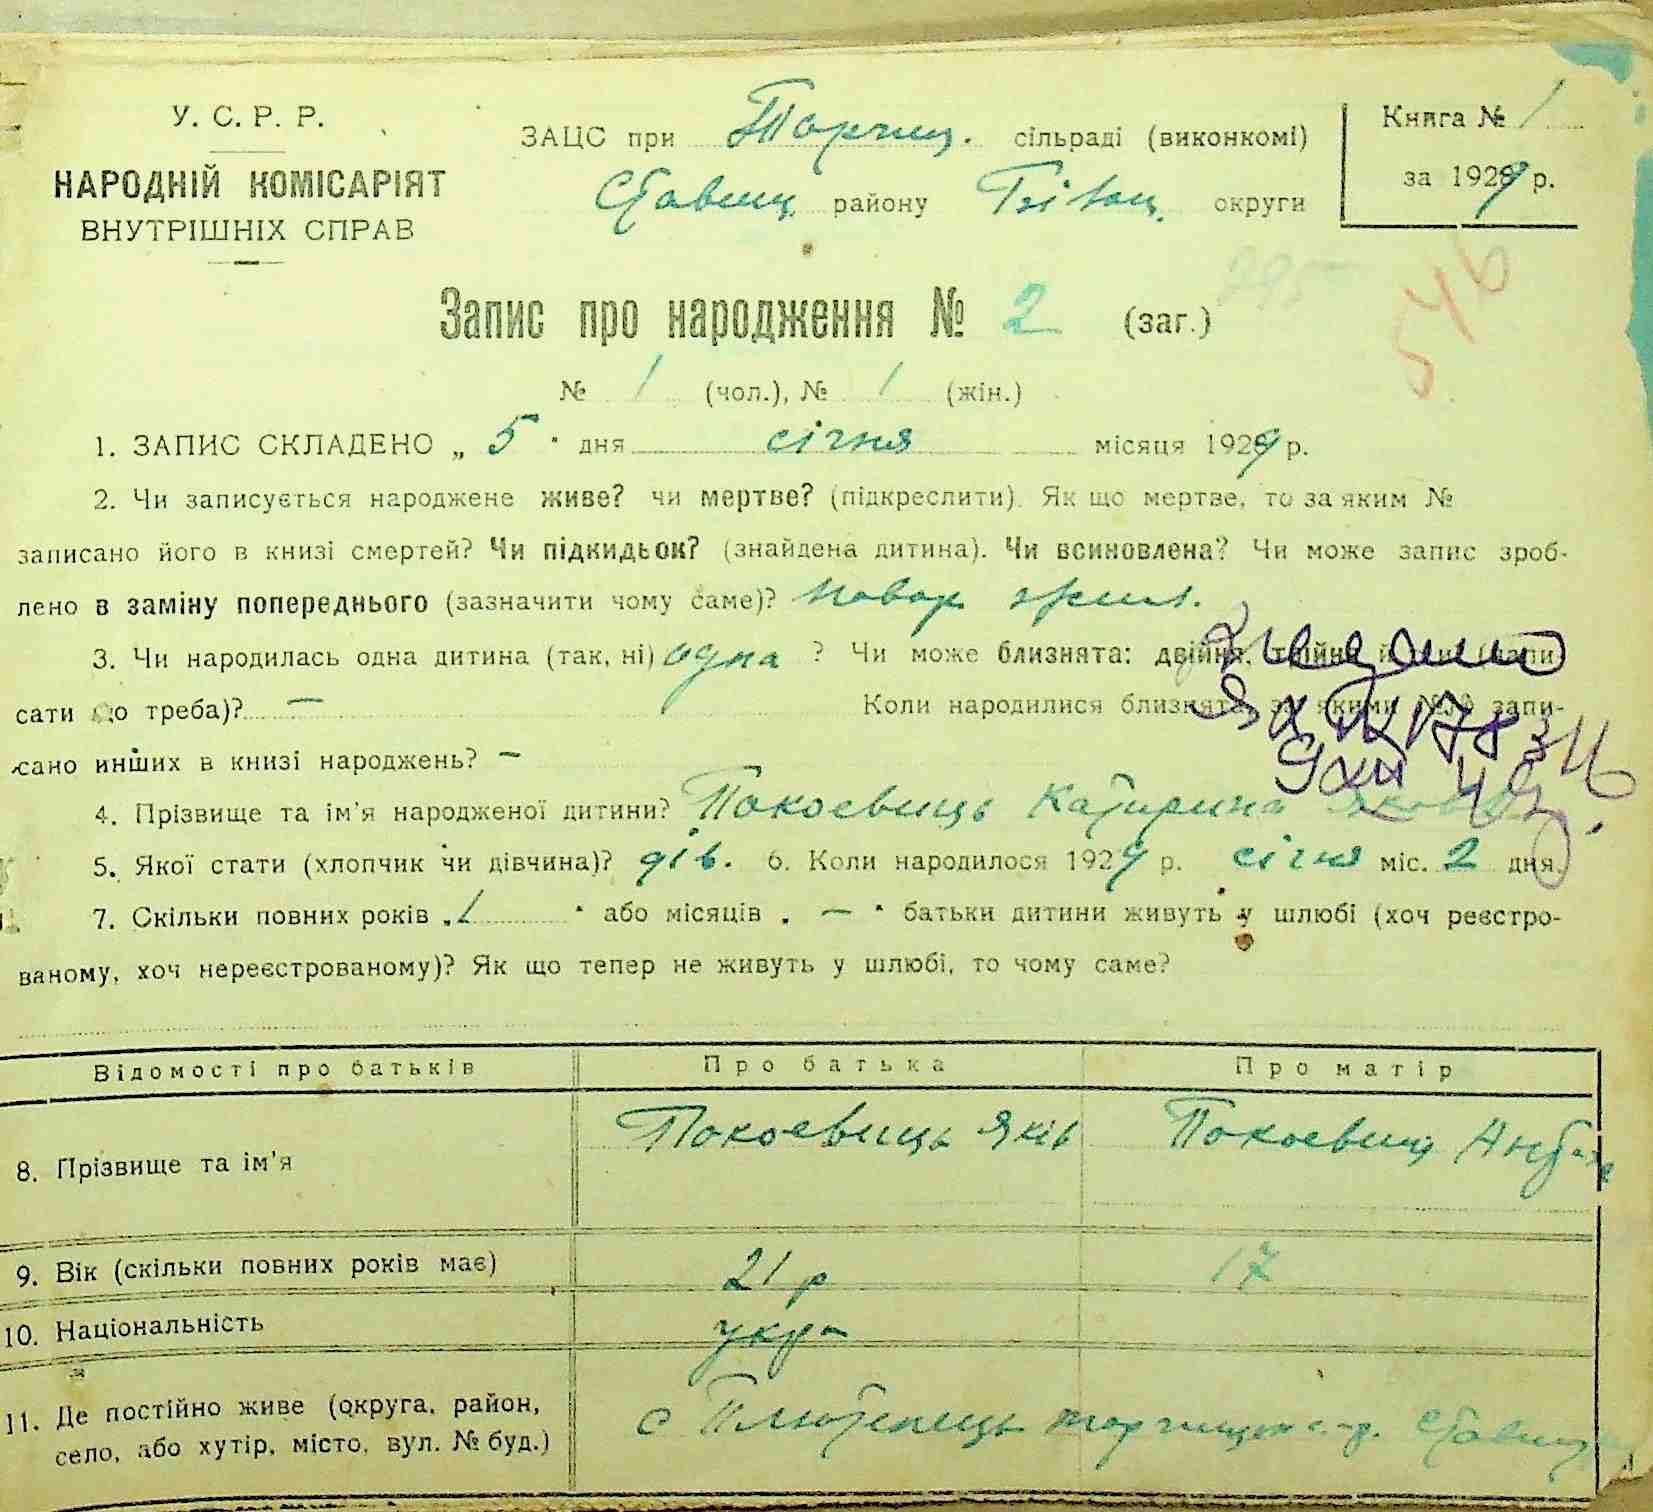 У. С. Р. Р.
НАРОДНІЙ КОМІСАРІЯТ
ВНУТРІШНІХ СПРАВ
ЗАЦС при Торчиц. сільраді (виконкомі)
Ставищ. району Білоц. округи
Книга № 1
за 1929 р.
546
Запис про народження № 2 (заг.)
№ 1 (чол.), № 1 (жін.)
1. ЗАПИС СКЛАДЕНО „ 5 " дня січня місяця 1929 р.
2. Чи записується народжене живе? чи мертве? (підкреслити). Як що мертве, то за яким №
записано його в книзі смертей? Чи підкидьок? (знайдена дитина). Чи всиновлена? Чи може запис зроб-
лено в заміну попереднього (зазначити чому саме)?
3. Чи народилась одна дитина (так, ні) одна ? Чи може близнята: двійня, трійня
сати що треба)? — Коли народилися близнята, за якими №№ запи-
сано инших в книзі народжень? —
4. Прізвище та ім'я народженої дитини? Покоевиць Катирина
5. Якої стати (хлопчик чи дівчина)? дів. 6. Коли народилося 1929 р. січня міс. 2 дня.
7. Скільки повних років „1 " або місяців „ — " батьки дитини живуть у шлюбі (хоч реєстро-
ваному, хоч нереєстрованому)? Як що тепер не живуть у шлюбі, то чому саме?
Відомості про батьків Про батька Про матір
8. Прізвище та ім'я Покоевиць Яків Покоевиц
9. Вік (скільки повних років має) 21 р 17
10. Національність укр
11. Де постійно живе (округа, район,
село, або хутір, місто, вул. № буд.) с